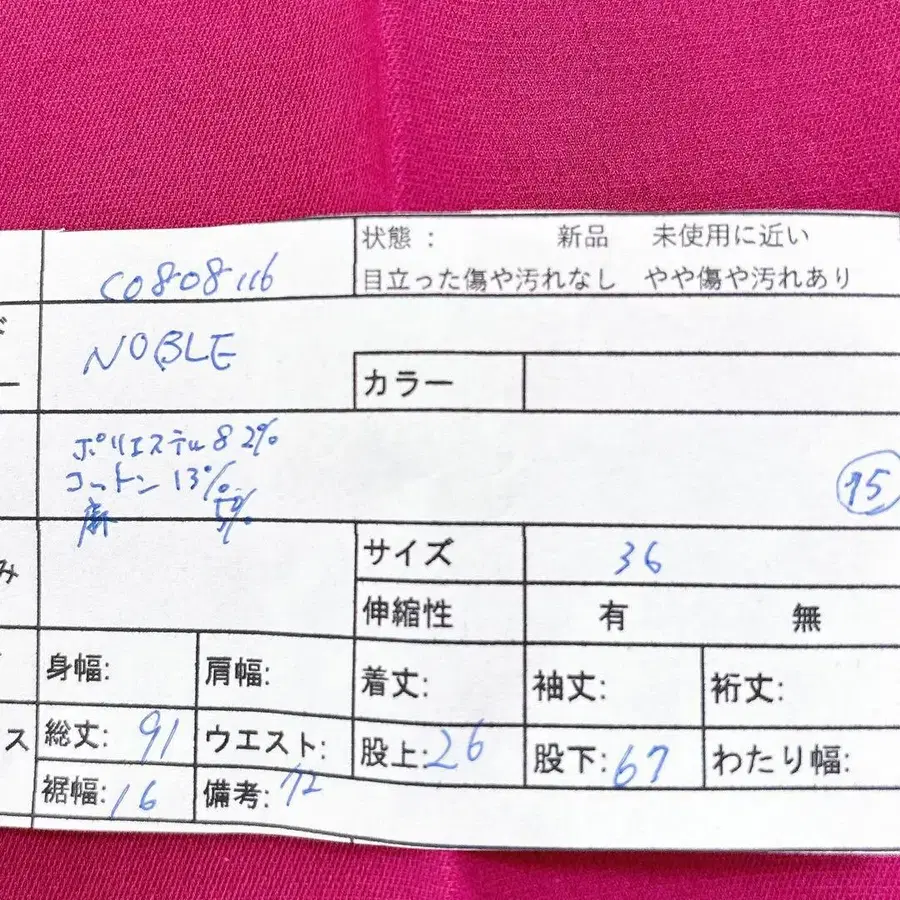 CO808116
状態: 新品 未使用に近い
目立った傷や汚れなし やや傷や汚れあり
NOBLE
カラー
ポリエステル82%
コットン13%
麻 5%
95
サイズ 36
み
伸縮性 有 無
身幅: 肩幅: 着丈: 袖丈: 裄丈:
ス 総丈: 91 ウエスト: 股上: 26 股下: 67 わたり幅:
裾幅: 16 備考: 72